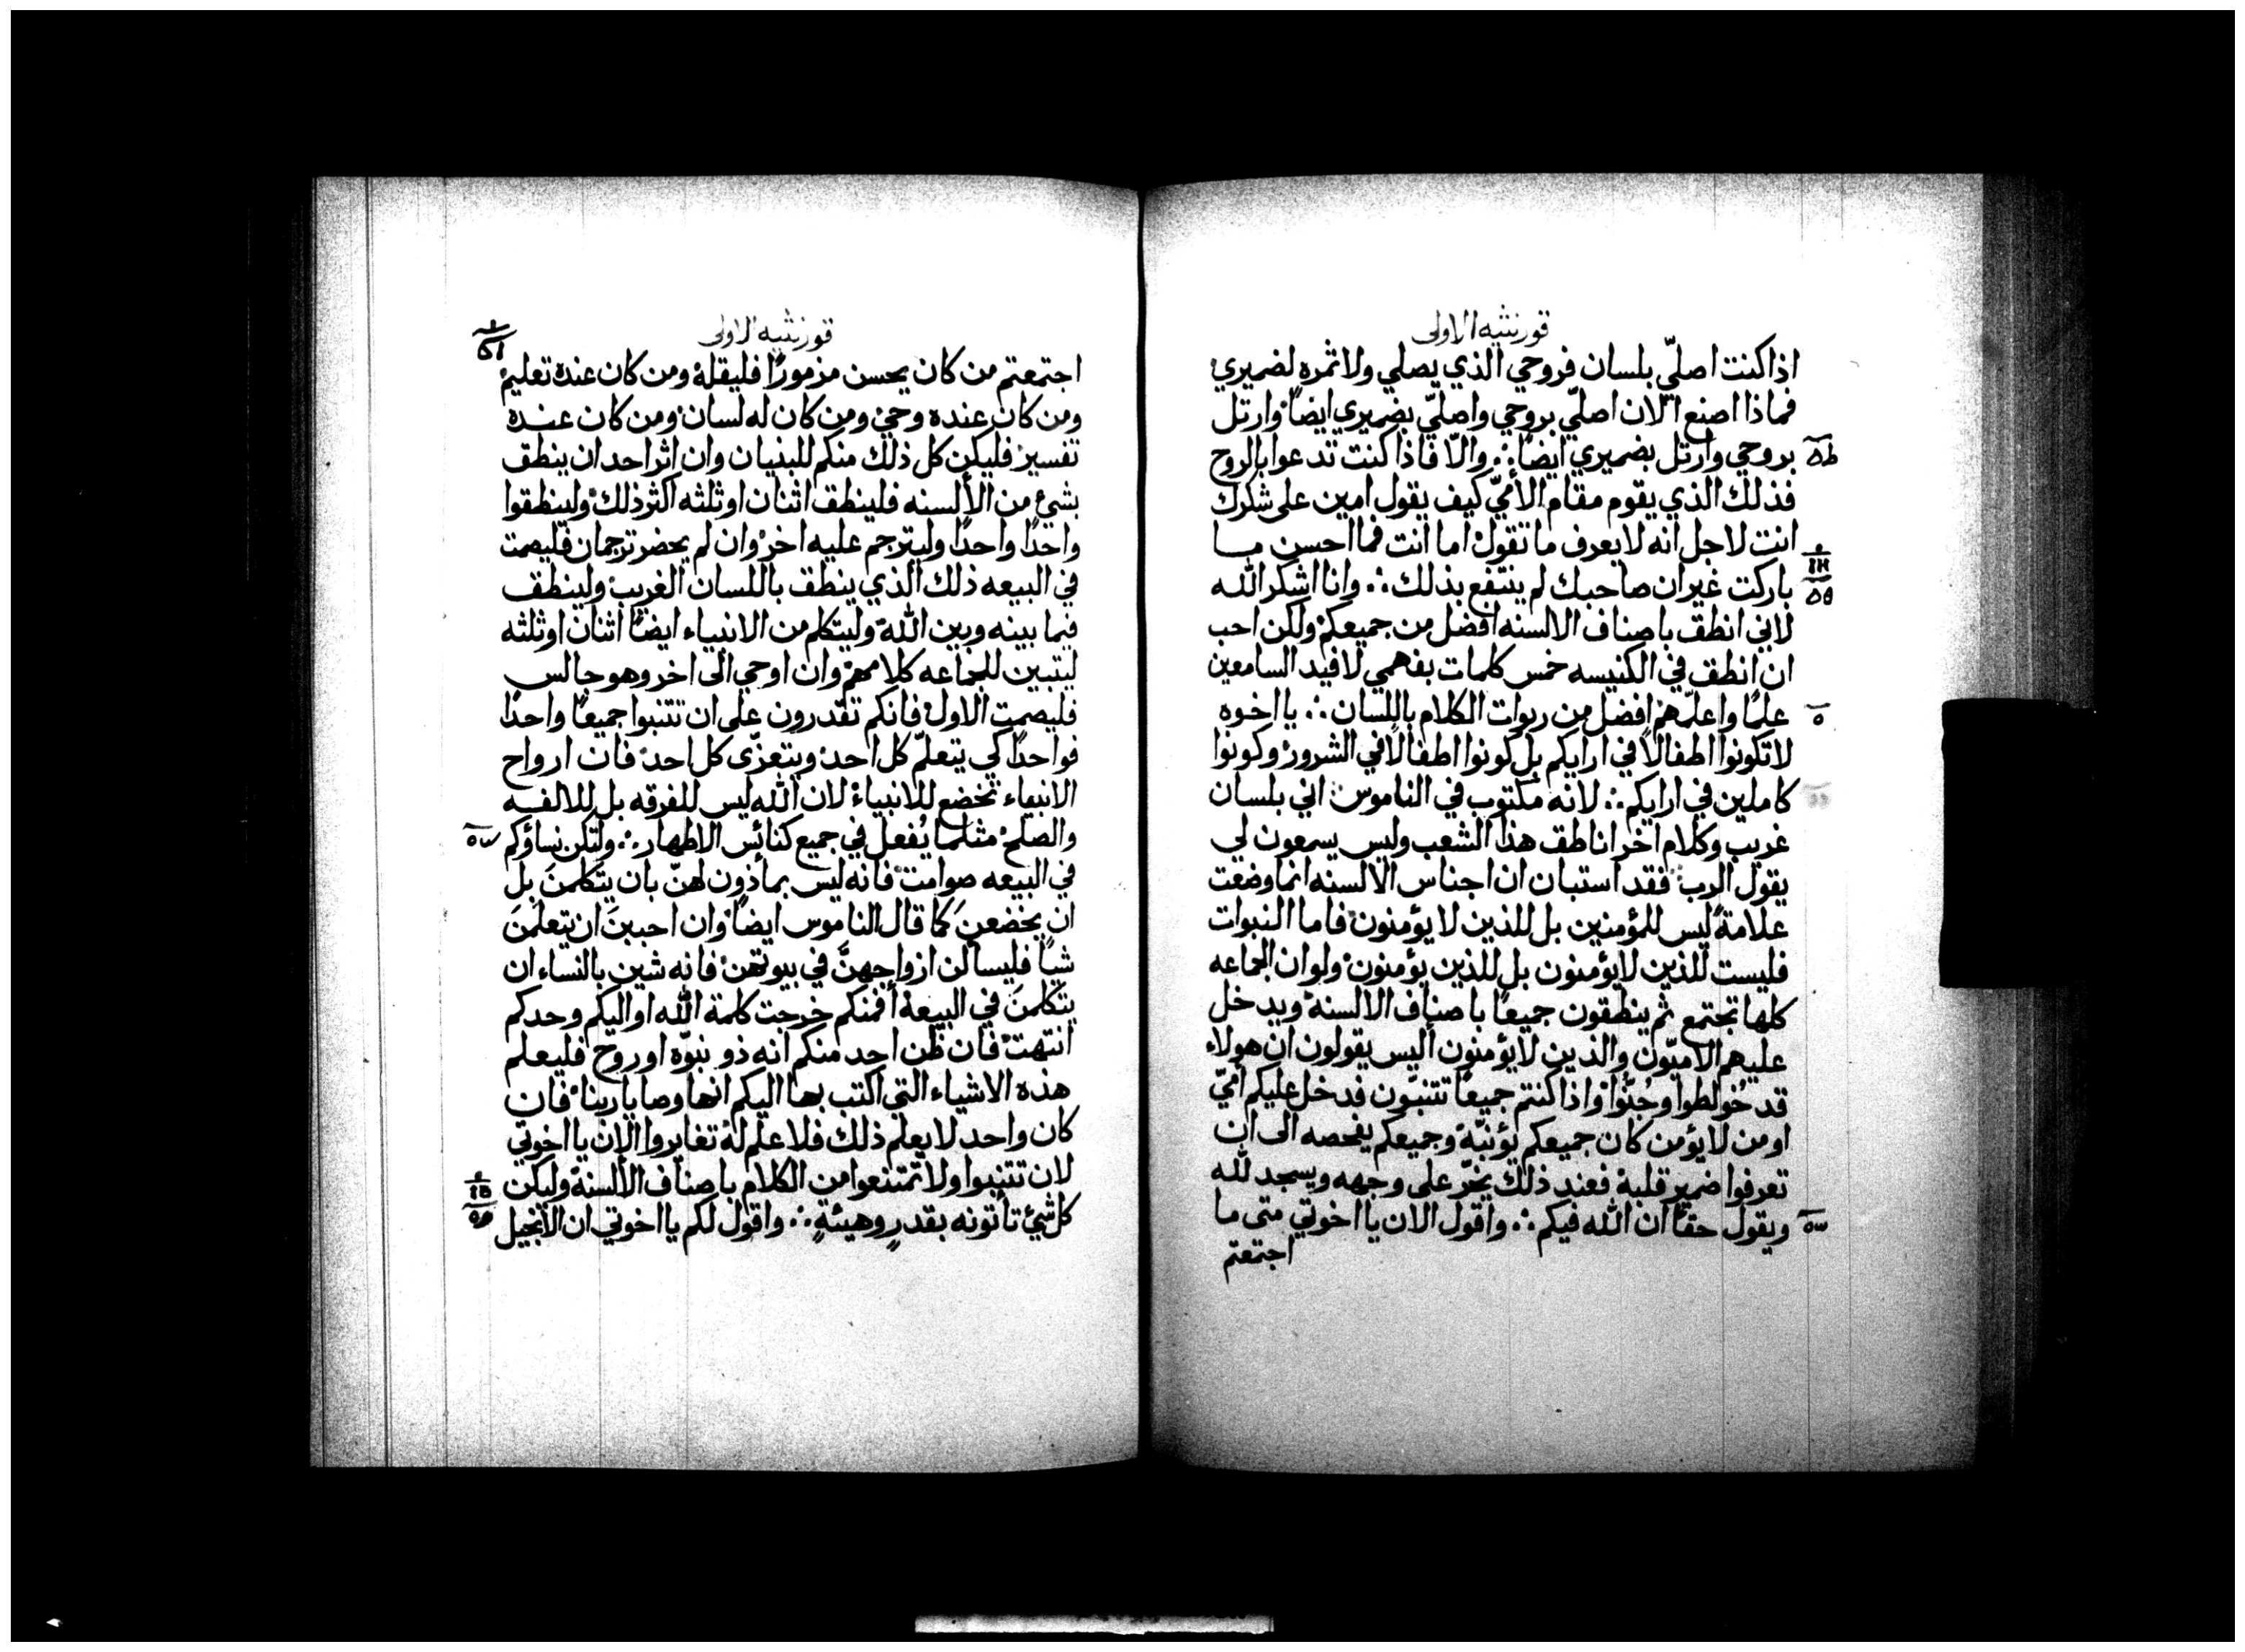 قورنثيه الاولى
اذا كنت اصلّي بلسان فروحي الذي يصلي ولا ثمره لضميري
فماذا اصنع الان اصلّي بروحي واصلّي بضميري ايضاً وارتل
بروحي وارتل بضميري ايضاً ∴ والّا فاذا كنت تدعوا بالروح
فذلك الذي يقوم مقام الأميّ كيف يقول امين على شكرك
انت لاجل انه لا يعرف ما تقول اما انت فما احسن ما
باركت غير ان صاحبك لم ينتفع بذلك ∴ وانا اشكر الله
لاني انطق باصناف الالسنه افضل من جميعكم ولكن احب
ان انطق في الكنيسه خمس كلمات بفهمي لافيد السامعين
علماً واعلّمهم افضل من ربوات الكلام باللسان ∴ يا اخوه
لا تكونوا اطفالاً في ارايكم بل كونوا اطفالاً في الشرور وكونوا
كاملين في ارايكم ∴ لانه مكتوب في الناموس اني بلسان
غريب وكلام اخر اناطق هذا الشعب وليس يسمعون لي
يقول الرب فقد استبان ان اجناس الالسنه انما وضعت
علامةً ليس للمؤمنين بل للذين لا يؤمنون فاما النبوات
فليست للذين لا يؤمنون بل للذين يؤمنون ولو ان الجماعه
كلها تجتمع ثم ينطقون جميعاً باصناف الالسنة ويدخل
عليهم الاميّون والذين لا يؤمنون أليس يقولون ان هولاء
قد خُولطوا وجُنّوا واذا كنتم جميعاً تتنبّون فدخل عليكم أميّ
او من لا يؤمن كان جميعكم يؤنبّه وجميعكم يفحصه الى ان
تعرفوا ضمير قلبه فعند ذلك يخرّ على وجهه ويسجد لله
ويقول حقاً ان الله فيكم ∴ واقول الان يا اخوتي متى ما
اجتمعتم
قورنثيه الاولى
اجتمعتم من كان يحسن مزموراً فليقله ومن كان عنده تعليم
ومن كان عنده وحي ومن كان له لسان ومن كان عنده
تفسير فليكن كل ذلك منكم للبنيان وان اثر احد ان ينطق
بشئ من الألسنه فلينطق اثنان او ثلثه اكثر ذلك ولينطقوا
واحداً واحداً وليترجم عليه اخر وان لم يحضر ترجمان فليصمت
في البيعه ذلك الذي ينطق باللسان الغريب ولينطق
فيما بينه وبين الله وليتكلم من الانبياء ايضاً اثنان او ثلثه
ليتبين للجماعه كلامهم وان اوحي الى اخر وهو جالس
فليصمت الاول فانكم تقدرون على ان تتنبوا جميعاً واحداً
فواحداً كي يتعلّم كل احد ويتعزّى كل احد فان ارواح
الانبياء تخضع للانبياء لان الله ليس للفرقه بل للالفه
والصلح مثلما يُفعل في جميع كنائس الاطهار ∴ ولتكن نساؤكم
في البيعه صوامت فانه ليس بمأذون لهنّ بان يتكلمنَ بل
ان يخضعن كما قال الناموس ايضاً وان احببن ان يتعلمن
شياً فليسألن ازواجهنّ في بيوتهن فانه شين بالنساء ان
يتكلمن في البيعة أفمنكم خرجت كلمة الله او اليكم وحدكم
انتهت فان ظن احد منكم انه ذو نبوّه او روح فليعلم
هذه الاشياء التي اكتب بها اليكم انها وصايا ربنا فان
كان واحد لا يعلم ذلك فلا علم له تغايروا الان يا اخوتي
لان تتنبوا ولا تمتنعوا من الكلام باصناف الألسنة وليكن
كل شئ تأتونه بقدرٍ وهيئةٍ ∴ واقول لكم يا اخوتي ان الانجيل